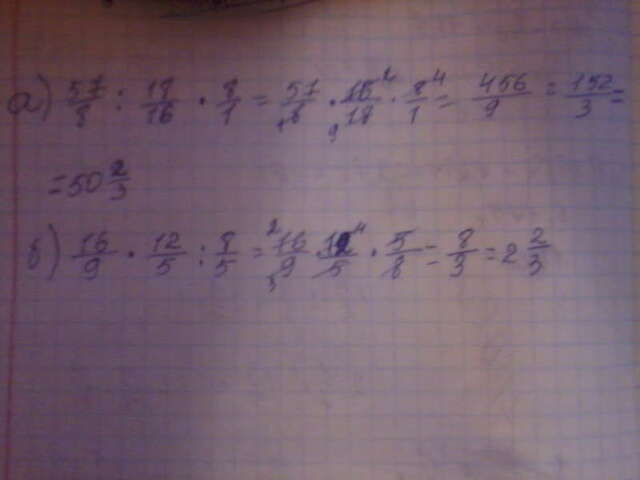 а) 57/8 : 18/16 · 8/1 = 57/8 · 16/18 · 8/1 = 456/9 = 152/3 =
= 50 2/3
б) 16/9 · 12/5 : 8/5 = 16/9 · 12/5 · 5/8 = 8/3 = 2 2/3